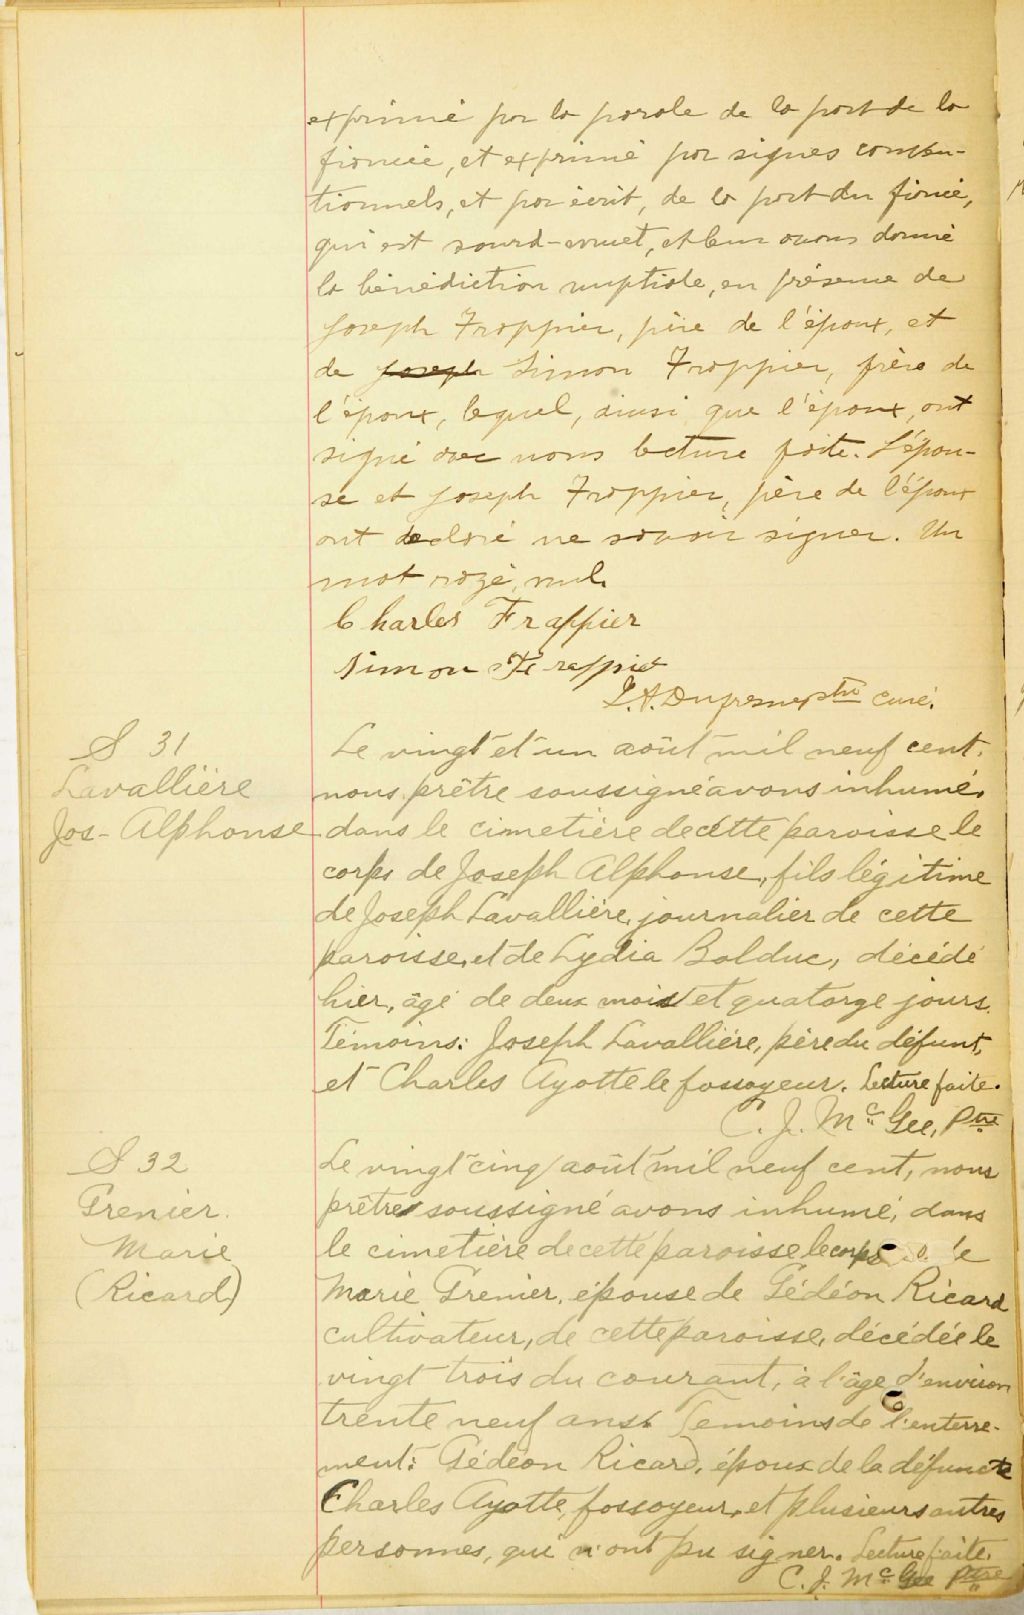 exprimé par la parole de la part de la
fiancée, et exprimé par signes conven-
tionnels, et par écrit, de la part du fiancé,
qui est sourd-muet, et leur avons donné
la bénédiction nuptiale, en présence de
Joseph Frappier, père de l'époux, et
de Joseph Simon Frappier, frère de
l'époux, lequel, ainsi que l'époux, ont
signé avec nous lecture faite. L'épou-
se et Joseph Frappier, père de l'époux
ont declaré ne savoir signer. Un
mot rayé, nul.
Charles Frappier
Simon Frappier
L.A. Dufresne, ptre curé.
S 31
Lavallière
Jos-Alphonse
Le vingt et un août mil neuf cent,
nous prêtre soussigné avons inhumé,
dans le cimetière de cette paroisse le
corps de Joseph Alphonse, fils légitime
de Joseph Lavallière, journalier de cette
paroisse, et de Lydia Bolduc, décédé
hier, âgé de deux mois et quatorze jours.
Témoins: Joseph Lavallière, père du défunt,
et Charles Ayotte le fossoyeur. Lecture faite.
C. J. McGee, Ptre
S 32
Grenier.
Marie
(Ricard)
Le vingt cinq août mil neuf cent, nous
prêtre soussigné avons inhumé, dans
le cimetière de cette paroisse le corps de
Marie Grenier, épouse de Gédéon Ricard
cultivateur, de cette paroisse, décédée le
vingt trois du courant, à l'âge d'environ
trente neuf ans. Temoins de l'enterre-
ment: Gédéon Ricard, époux de la défuncte
Charles Ayotte, fossoyeur, et plusieurs autres
personnes, qui n'ont pu signer. Lecture faite.
C. J. McGee Ptre